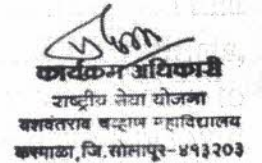 कार्यक्रम अधिकारी
राष्ट्रीय सेवा योजना
यशवंतराव चव्हाण महाविद्यालय
करमाळा,जि.सोलापूर-४१३२०३